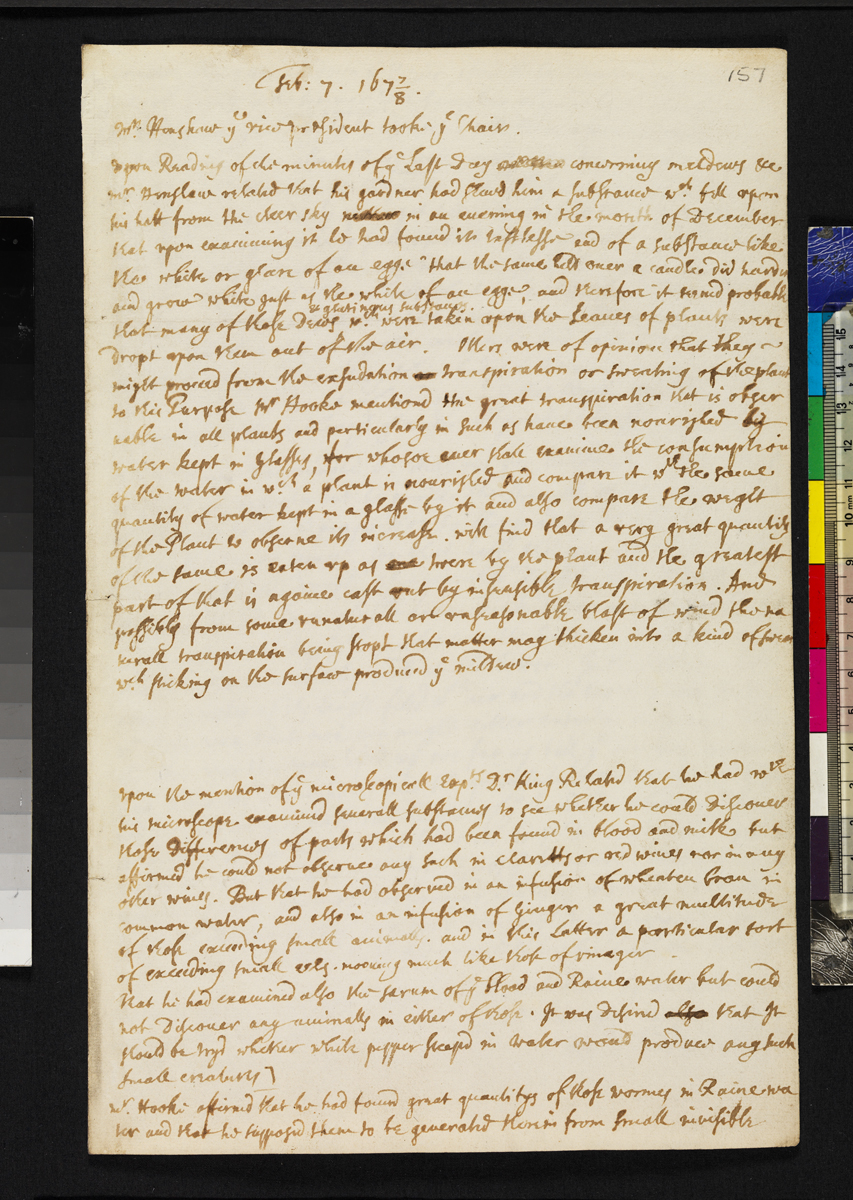 157
Feb: 7. 167 7/8.
Mr. Henshaw ye vice president tooke ye Chair.
upon Reading of the minutes of ye Last Day concerning mildews &c
mr Henshaw related that his gardner had shewd him a substance wch fell upon
his hatt from the cleer sky in an evening in the month of December
that upon examining it he had found its tastlesse and of a substance like
the white or glare of an egge that the same held over a candle did harden
and grow white just as the white of an egge, and therfore it seemd probable
a glutinous substances
that many of those Dews wch were taken upon the Leaves of plants were
Dropt upon them out of the air. Others were of opinion that they
might proceed from the exsudation transpiration or sweating of the plant
to this Purpose Mr Hooke mentiond the great transpiration that is obser
uable in all plants and particularly in such as haue been nourished by
water kept in glasses, for whosoe euer shall examine the consumption
of the water in wch a plant is nourished and compare it wth the same
quantity of water kept in a glasse by it and also compare the weight
of the Plant to obserue its increase. will find that a very great quantity
of the same is eaten up as twere by the plant and the greatest
part of that is againe cast out by insensible transpiration. And
possibly from some unnaturall or unseasonable blast of wind the na
turall transpiration being stopt that matter may thicken into a kind of
wch sticking on the surface produced ye mildew.
upon the mention of ye microscopicall Expts Dr King Related that he had wth
his microscope examind seuerall substances to see whether he could Discouer
those Differences of parts which had been found in blood and milk but
affirmed he could not obserue any such in claretts or red wines nor in any
other wines. But that he had obserued in an infusion of wheaten bran in
common water, and also in an infusion of Ginger a great multitude
of those exceeding small animalls. and in this Latter a particular sort
of exceeding small eels. moouing much like those of vinager.
that he had examined also the serum of ye blood and Raine water but could
not Discouer any animalls in either of those. It was desired that It
should be tryd whether white pepper steepd in water would produce any such
small creatures]
mr. Hooke affirmd that he had found great quantitys of those wormes in Raine wa
ter and that he supposd them to be generated therin from small invisible